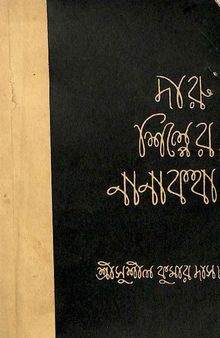 দারু
শিল্পের
নানাকথা
শ্রীসুশীল কুমার দাস